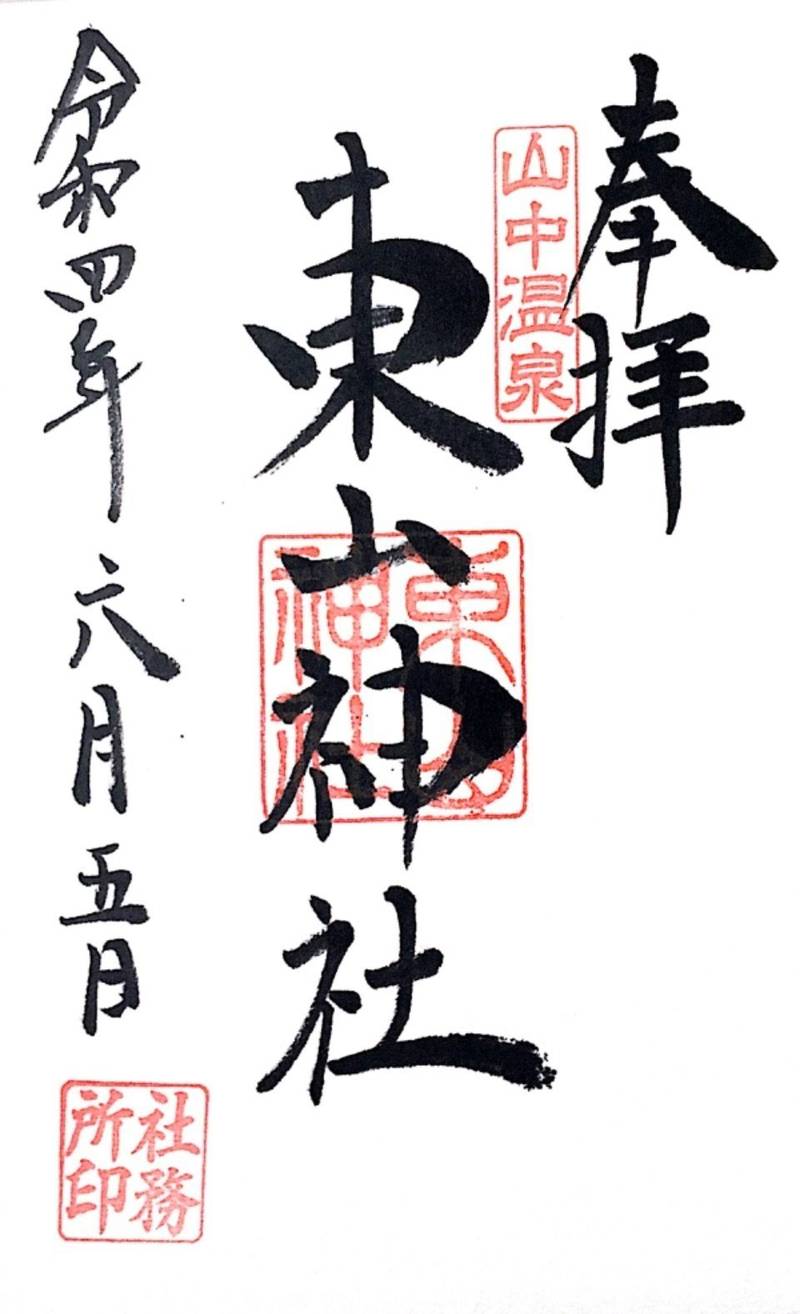 奉拝
山中温泉
東山神社
東山神社
令和四年六月五日
社務所印